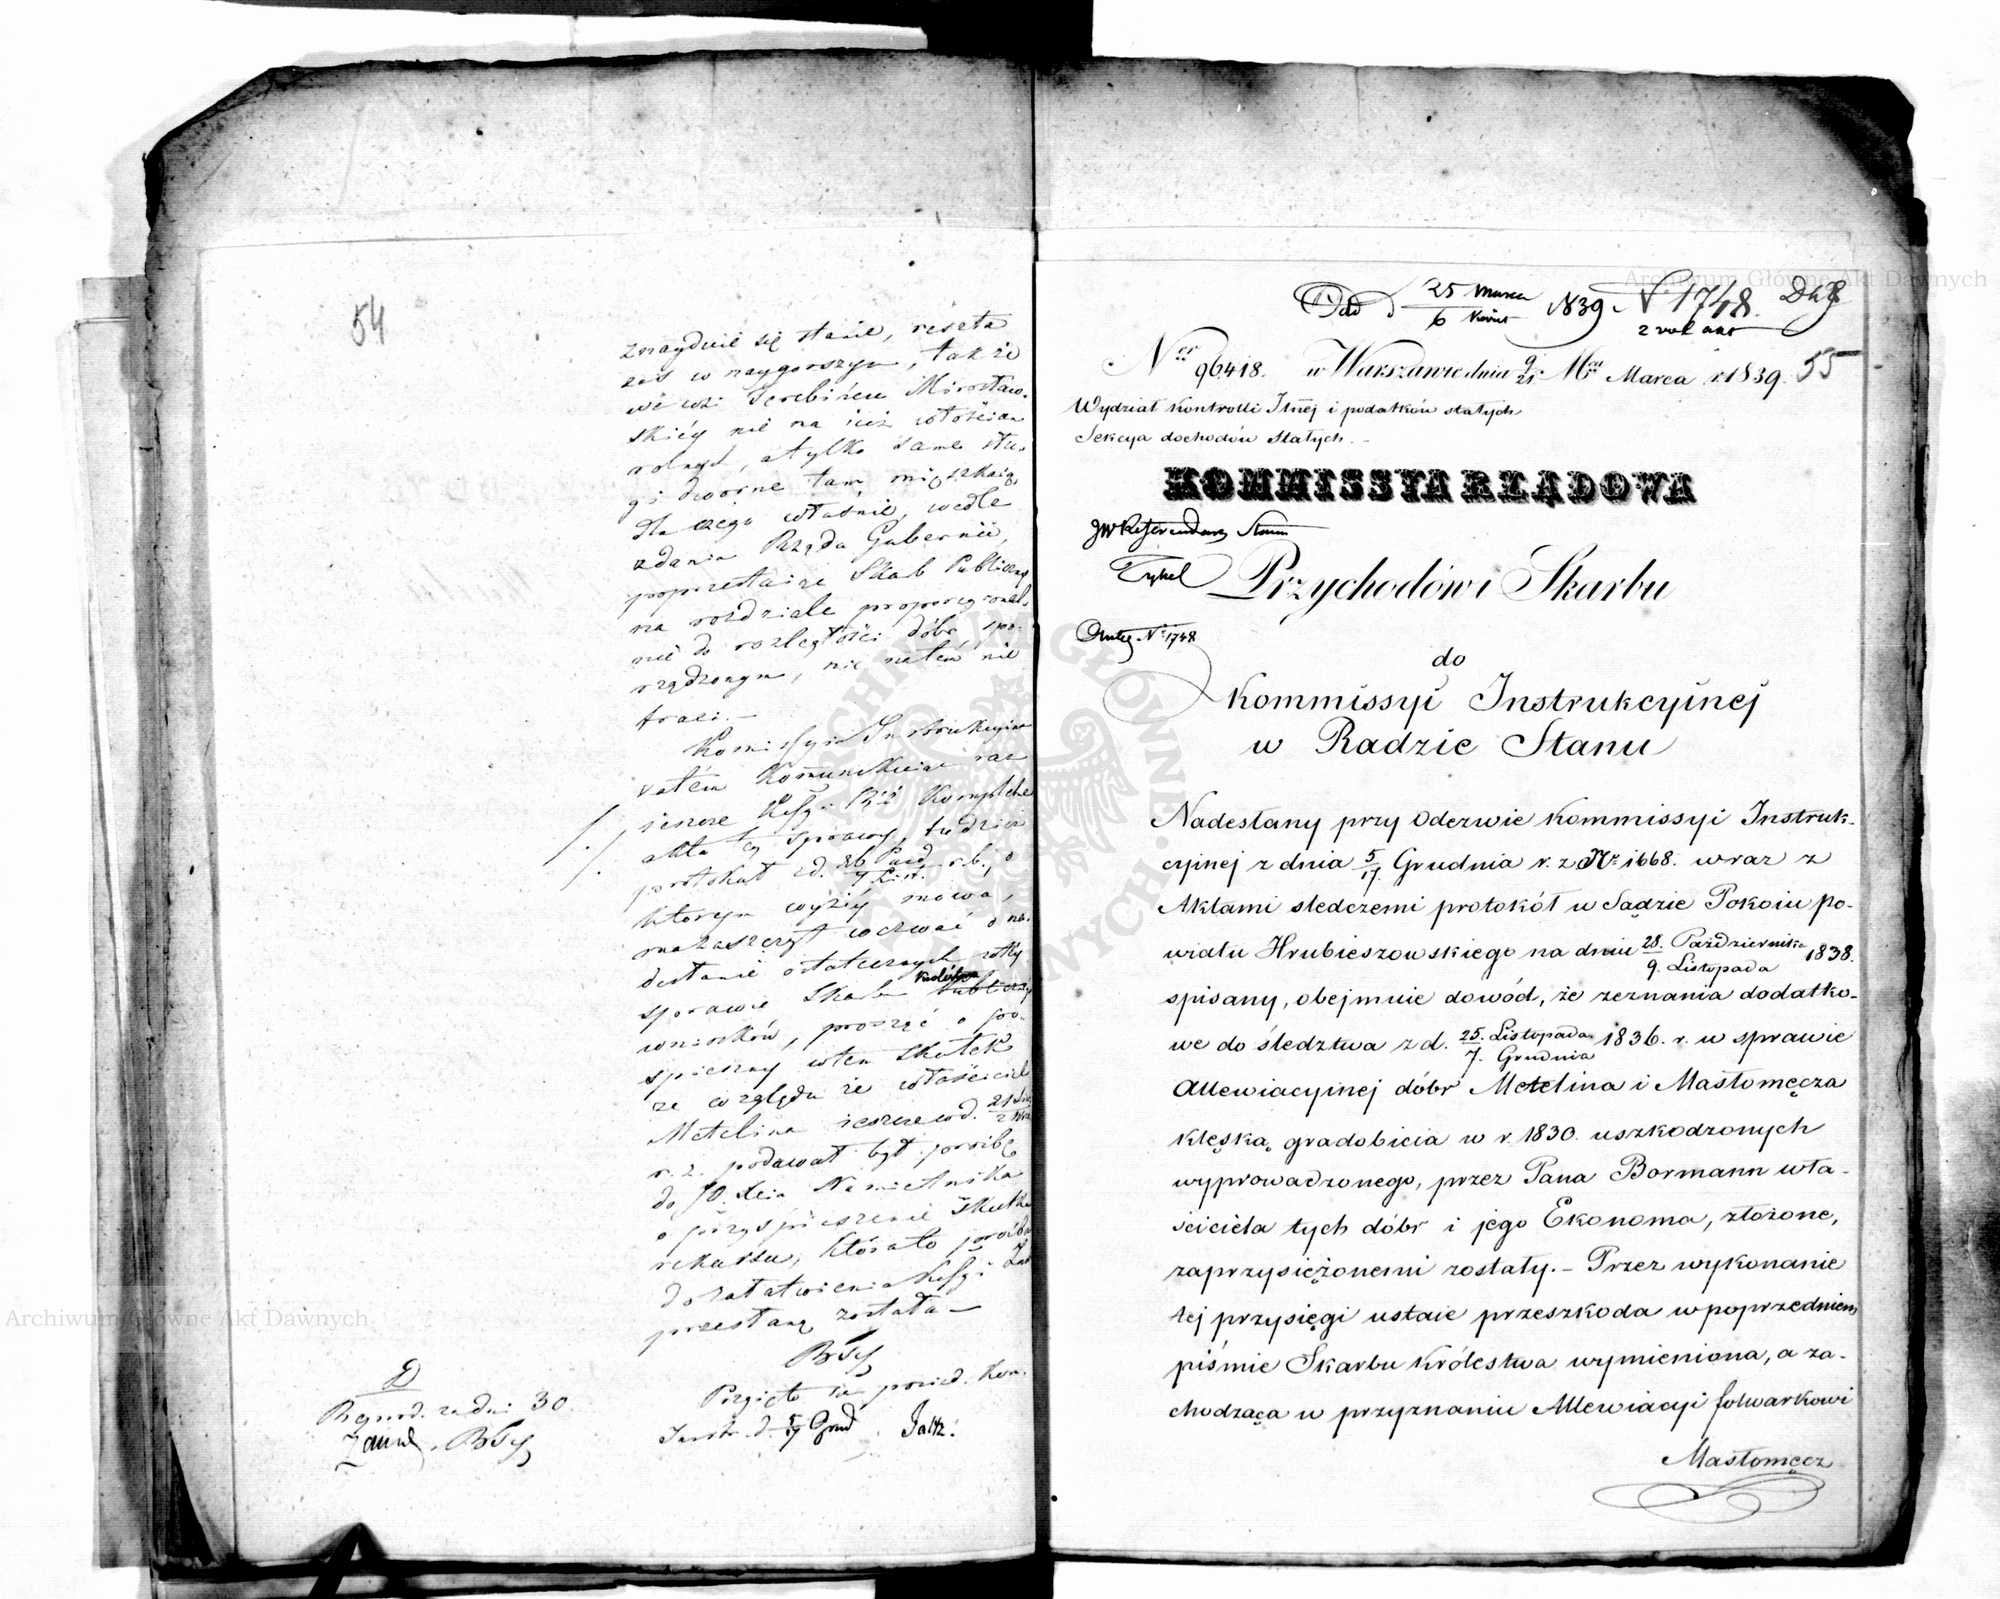 54
znayduie się stanie, reszta
zaś w naygorszym, tak że
we wsi Terebińcu Mirosław-
skiéy nie ma iuż włościan
rolnych, a tylko same słu-
gi dworne tam mięszkaią,
dla czego właśnie, wedle
zdania Rządu Gubernii,
poprzestaiąc Skarb Publiczny
na rozdziale proporcyonal-
nie do rozległości dóbr, spo-
rządzonym, nic na tém nie
traci. —
Kommissyia Instrukcyina
zatém Kommunikuiąc raz
ieszcze Kssyi Rz Kompletne
akta téy sprawy, tudzież
protokuł z d. 26 Paźd r. b., o
którym wyżéy mowa,
ma zaszczyt wezwać o na-
desłanie ostatecznych w téy
sprawie Skarbu
wniosków, prosząc o po-
spieszny w tém skutek
ze względu że właściciel
Metelina ieszcze w d. 21
r. z. podawał był proźbę
do JO. Xcia Namiestnika
o przyspieszenie skutku
rekursu, która to proźba
do załatwienia Kssyi
przesłaną została —
Przyięto na posied. Kom.
Instr. d. 5/17 Grud
Reprod. za dni 30
Dd d 25 Marca / 6 Kwiet 1839 N 1748.
55
Ner 96418. w Warszawie dnia 9/21 Mca Marca r. 1839.
Wydział Kontrolli Itnéj i podatków stałych
Sekcya dochodów Stałych. —
KOMMISSYIA RZĄDOWA
JW Referendarz Stanu
Przychodów i Skarbu
N 1748
do
Kommissyi Instrukcyinej
w Radzie Stanu
Nadesłany przy Odezwie Kommissyi Instruk-
cyinej z dnia 5/17 Grudnia r. z Nr 1668. wraz z
Aktami śledczemi protokół w Sądzie Pokoiu po-
wiatu Hrubieszowskiego na dniu 28. Października / 9. Listopada 1838.
spisany, obejmuie dowód, że zeznania dodatko-
we do śledztwa z d. 25. Listopada / 7. Grudnia 1836. r. w sprawie
Allewiacyinej dóbr Metelina i Masłomęcza
klęską gradobicia w r. 1830. uszkodzonych
wyprowadzonego, przez Pana Bormann wła-
ściciela tych dóbr i jego Ekonoma, złożone,
zaprzysiężonemi zostały. — Przez wykonanie
tej przysięgi ustaie przeszkoda w poprzedniem
piśmie Skarbu Królestwa wymieniona, a za-
chodząca w przyznaniu Allewiacyi folwarkowi
Masłomęcz
Archiwum Główne Akt Dawnych
Archiwum Główne Akt Dawnych